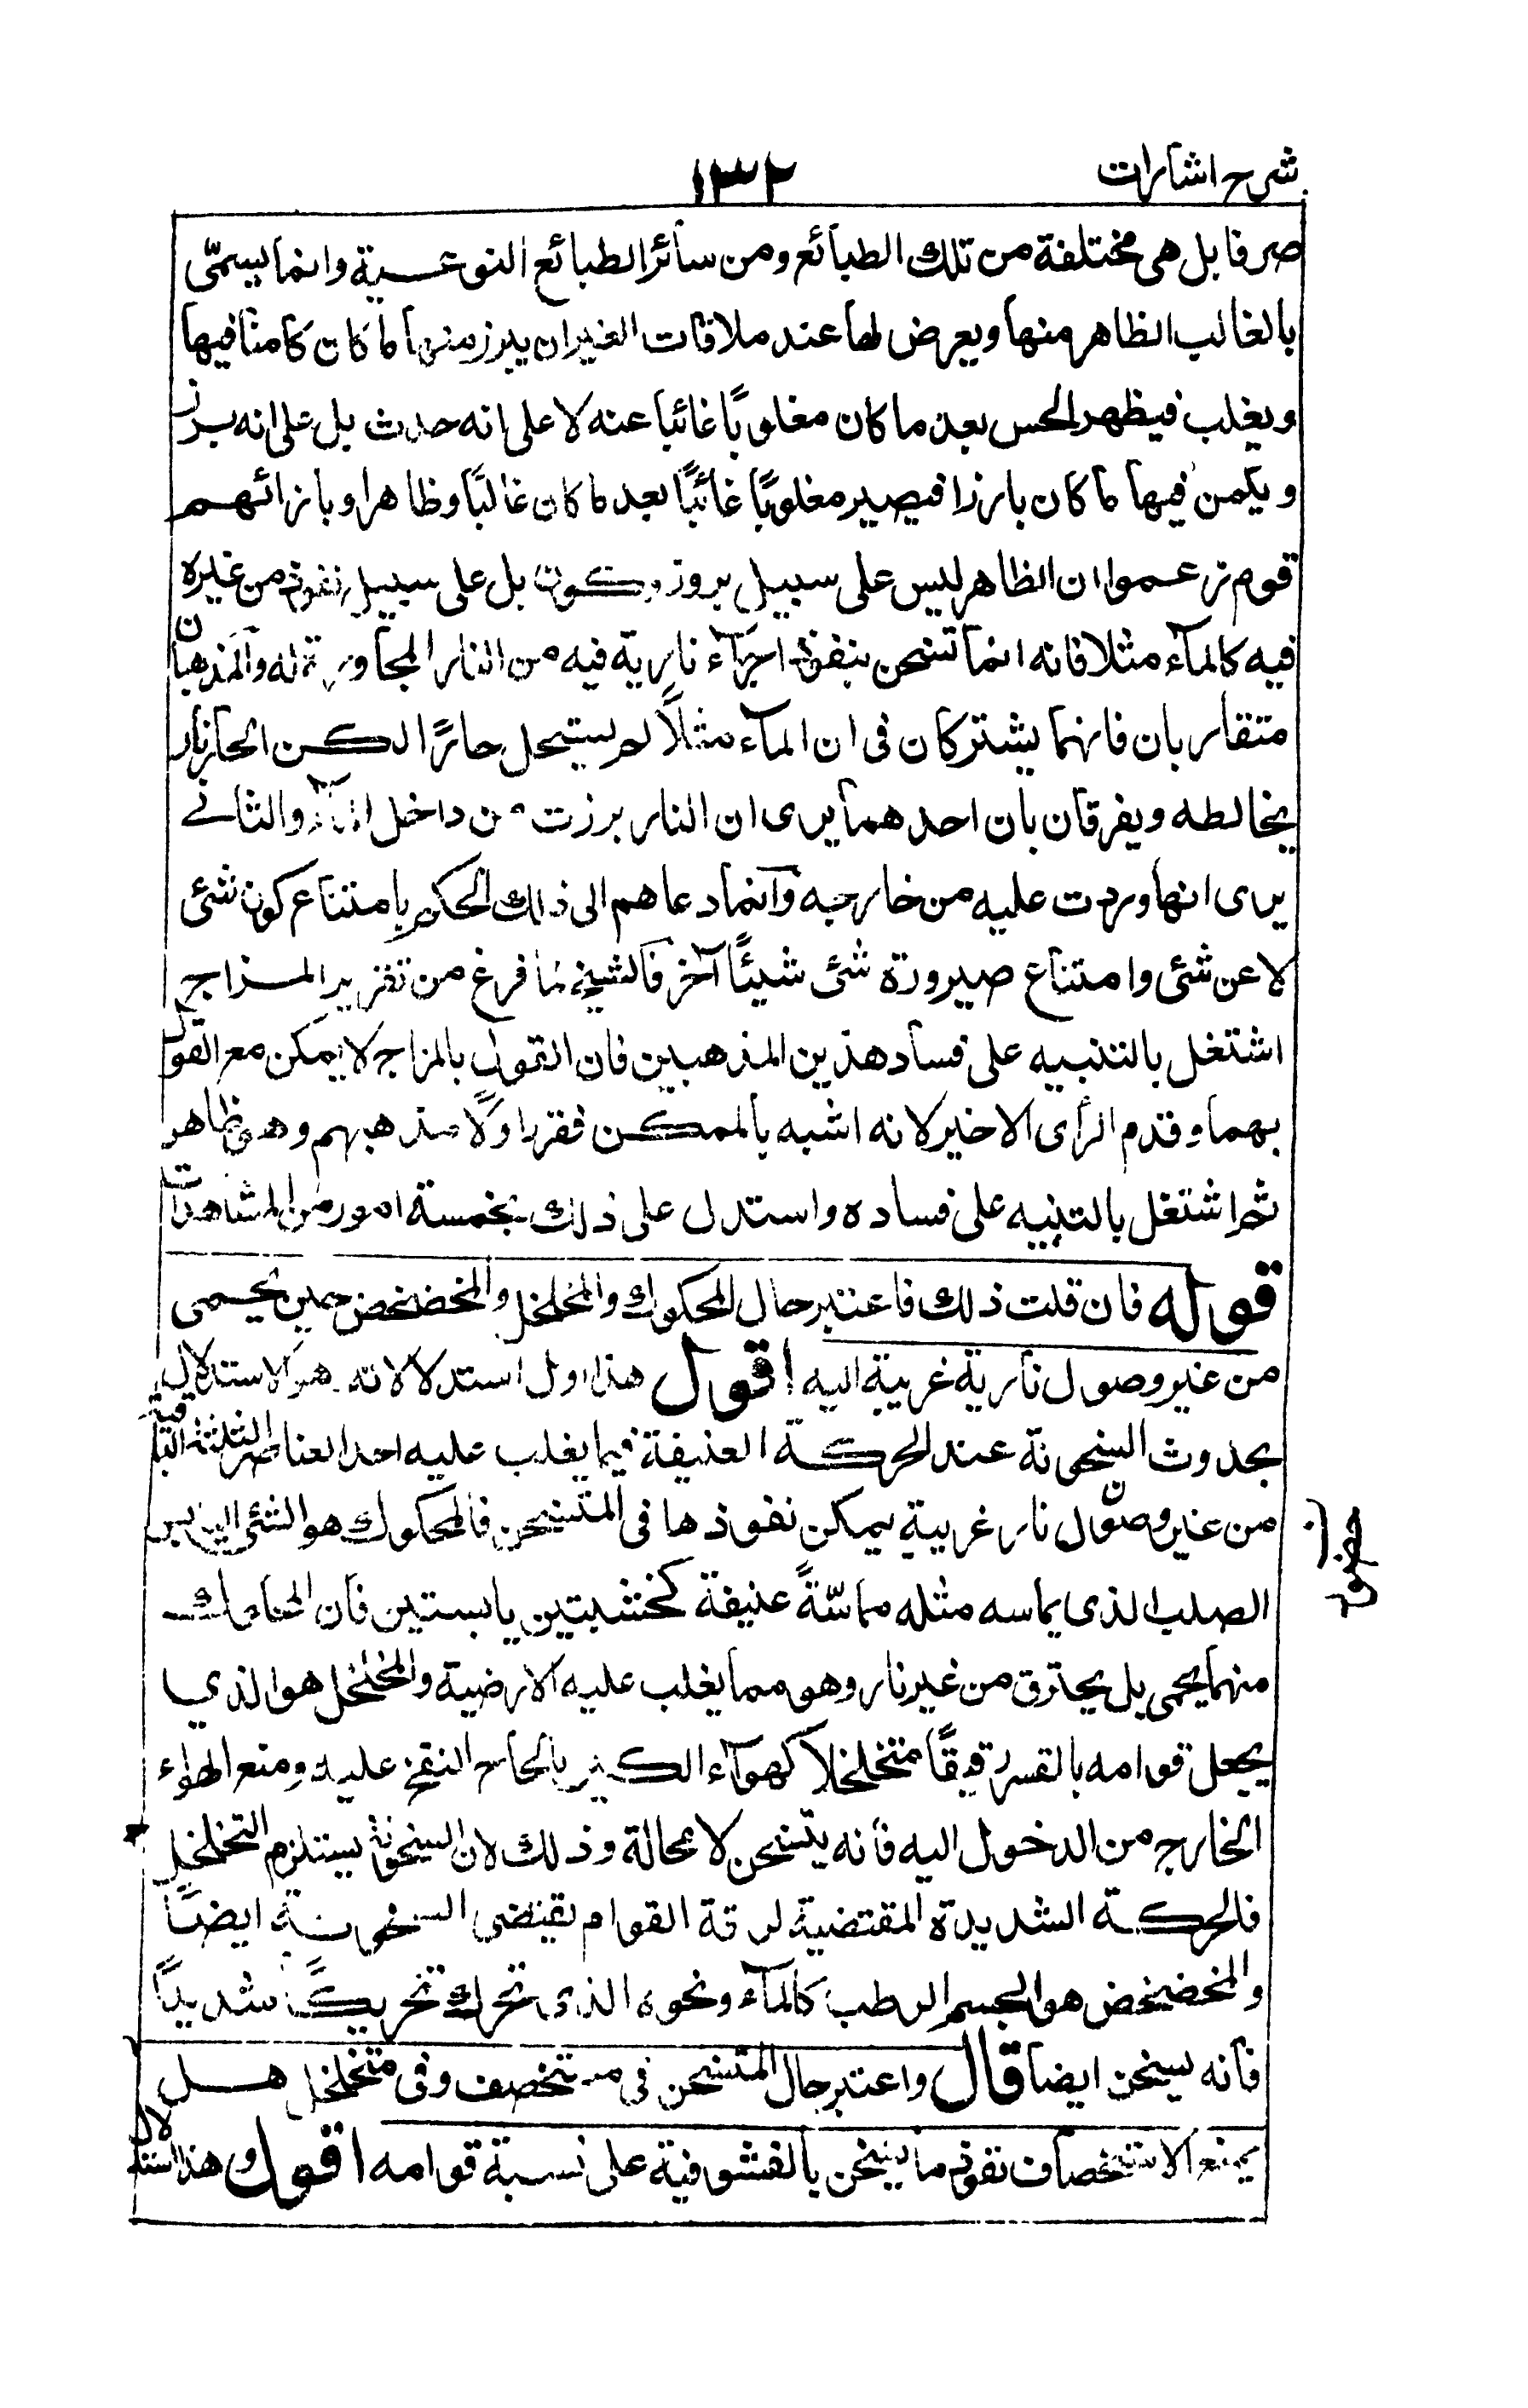 شرح اشارات
١٣٢
صرفا بل هى مختلفة من تلك الطبائع ومن سائر الطبائع النوعية وانما يسمّى
بالغالب الظاهر منها ويعرض لها عند ملاقات الغير ان يبرز منها ما كان كامنا فيها
ويغلب فيظهر للحس بعد ما كان مغلوبًا غائبا عنه لا على انه حدث بل على انه برز
ويكمن فيها ما كان بارزا فيصير مغلوبًا غائبًا بعد ما كان غالبًا وظاهرا وبازائهم
قوم زعموا ان الظاهر ليس على سبيل بروز وكمون بل على سبيل نفوذ من غيره
فيه كالمآء مثلا فانه انما تسخن بنفوذ اجزآء نارية فيه من النار المجاورة له والمذهبان
متقاربان فانهما يشتركان فى ان المآء مثلاً لم يستحل حارًا لكن الحار نار
يخالطه ويفرقان بان احدهما يرى ان النار برزت من داخل المآء والثانے
يرى انها وردت عليه من خارجه وانما دعاهم الى ذلك الحكم بامتناع كون شئ
لا عن شئ وامتناع صيرورة شئ شيئًا آخر فالشيخ لما فرغ من تقرير المزاج
اشتغل بالتنبيه على فساد هذين المذهبين فان القول بالمزاج لا يمكن مع القول
بهما وقدم الرأى الاخير لانه اشبه بالممكن فقرر اولًا مذهبهم وهو ظاهر
ثم اشتغل بالتنبيه على فساده واستدل على ذلك بخمسة امور من المشاهدات
قوله فان قلت ذلك فاعتبر حال المحكوك والمخلخل والمخضخض حين يحمى
من غير وصول نارية غريبة اليه اقول هذا اول استدلالاته وهو الاستدلال
بحدوث السخونة عند الحركة العنيفة فيما يغلب عليه احد العناصر الثلثة الباقية
من غير وصول نار غريبة يمكن نفوذها فى المتسخن فالمحكوك هو الشئ اليابس
الصلب الذى يماسه مثله مماسّةً عنيفة كخشبتين يابستين فان المحكوك
منهما يحمى بل يحترق من غير نار وهو مما يغلب عليه الارضية والمخلخل هو الذي
يجعل قوامه بالقسر رقيقًا متخلخلا كهوآء الكير بالحاح النفخ عليه ومنع الهواء
الخارج من الدخول اليه فانه يتسخن لا محالة وذلك لان السخونة يستلزم التخلخل
فالحركة الشديدة المقتضية لرقة القوام تقتضى السخونة ايضًا
والمخضخض هو الجسم الرطب كالمآء ونحوه الذى تحرك تحريكًا شديدًا
فانه يسخن ايضا قال واعتبر حال المتسخن فى مستخصف وفى متخلخل هل
يمنع الاستخصاف نفوذ ما يسخن بالفشو فيه على نسبة قوامه اقول وهذا استدلال